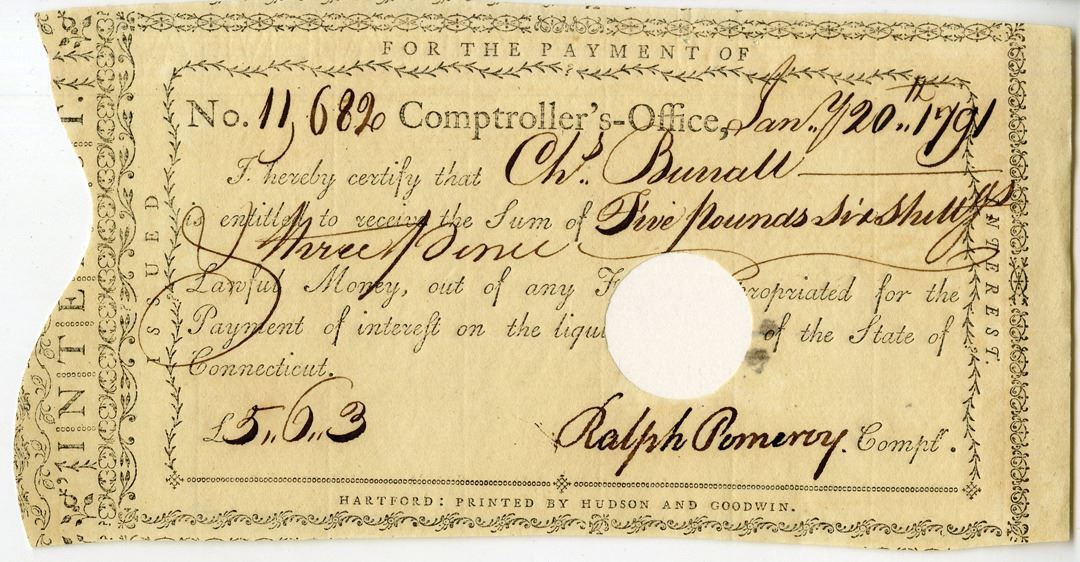 FOR THE PAYMENT OF
No. 11,682 Comptroller's-Office, Jany 20th 1791
I hereby certify that Chs. Burrall
is entitled to receive the Sum of Five pounds six shillgs
three pence
Lawful Money, out of any propriated for the
Payment of interest on the of the State of
Connecticut.
£5,,6,,3 Ralph Pomeroy. Compt.
HARTFORD: PRINTED BY HUDSON AND GOODWIN.
ISSUED
INTEREST.
INTE